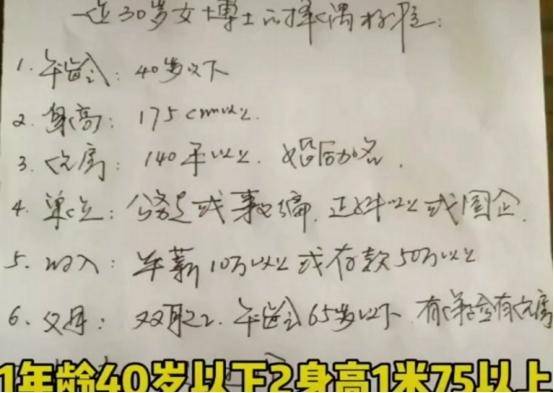 一位30岁女博士的择偶标准:
1. 年龄: 40岁以下
2. 身高: 175cm以上.
3. 住房: 140平以上. 婚后加名.
4. 单位: 公务员或事业编. 正科以上或国企.
5. 收入: 年薪10万以上或存款50万以上
6. 父母: 双职工. 年龄65岁以下. 有养老金有住房
1年龄40岁以下2身高1米75以上